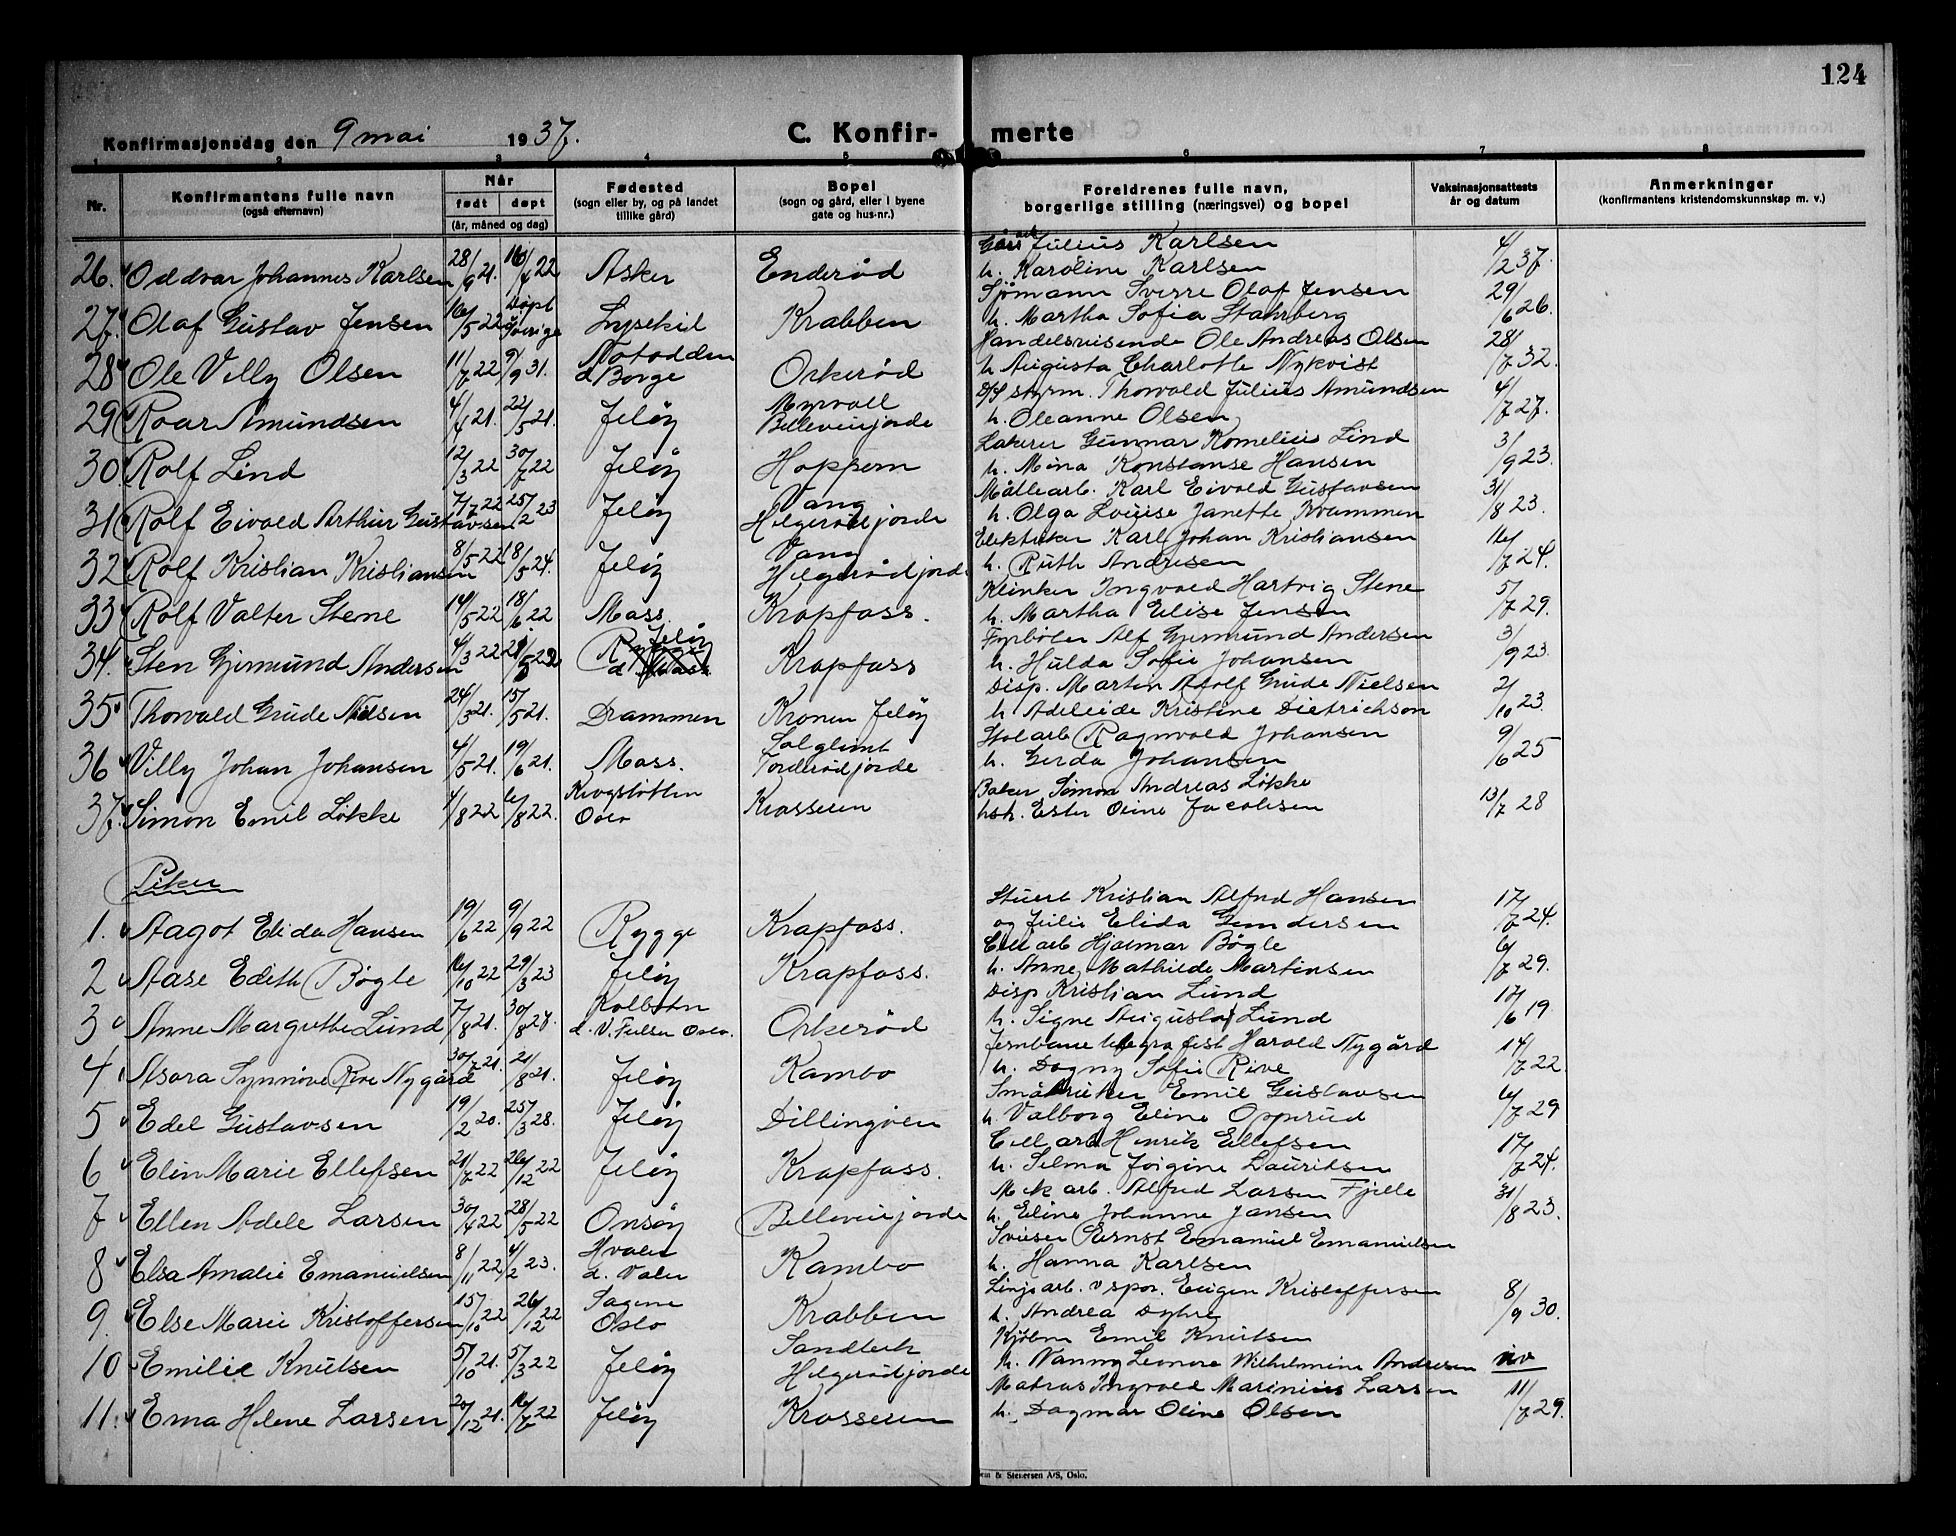 124
Konfirmasjonsdag den 9 mai 1937.
C. Konfir- merte
1 2 3 4 5 6 7 8
Nr.
Konfirmantens fulle navn
(også efternavn)
Når
født døpt
(år, måned og dag)
Fødested
(sogn eller by, og på landet
tillike gård)
Bopel
(sogn og gård, eller i byene
gate og hus-nr.)
Foreldrenes fulle navn,
borgerlige stilling (næringsvei) og bopel
Vaksinasjonsattests
år og datum
Anmerkninger
(konfirmantens kristendomskunnskap m. v.)
Julius Karlsen 4/2 37.
26. Oddvar Johannes Karlsen 28/9 21. 22 Asker Enderød h. Karoline Karlsen
Sjømann Sverre Olaf Jensen 29/6 26.
27. Olaf Gustav Jensen 16/5 22 Døpt i Sverige Lysekil Krabben h. Martha Sofia Stahrberg
Handelsreisende Ole Andreas Olsen 28/7 32.
28 Ole Villy Olsen 11/7 22 9/9 31. Notodden d. Borge Orkerød h Augusta Charlotte Nykvist
D/S styrm. Thorvald Julius Amundsen 4/7 27.
29 Roar Amundsen 4/4 21. 22/5 21. Jeløy Myrvoll Bellevuejorde h. Oleanne Olsen
Lakerer Gunnar Kornelius Lind 3/9 23.
30 Rolf Lind 12/3 22 30/7 22 Jeløy Hoppern h. Mina Konstanse Hansen
Møllearb. Karl Eivald Gustavsen 31/8 23.
31 Rolf Eivald Arthur Gustavsen 7/7 22 25/2 23 Jeløy Vang Helgerødjorde h. Olga Louise Janette Krammen
Elektriker Karl Johan Kristiansen 16/7 24.
32 Rolf Kristian Kristiansen 8/5 22 18/5 24. Jeløy Vang Helgerødjorde h. Ruth Andresen
Klinker Ingvald Hartvig Stene 5/7 29.
33 Rolf Valter Stene 14/5 22 18/6 22 Moss. Krapfoss. h. Martha Elise Jensen
Fyrbøter Alf Gjermund Andersen 3/9 23.
34. Sten Gjermund Andersen 4/3 22 Jeløy Krapfoss h. Hulda Sofie Johansen
Disp. Martin Adolf Grude Nielsen 2/10 23.
35 Thorvald Grude Nielsen 24/3 21. 15/5 21. Drammen Kronen Jeløy h Adeleide Kristine Dietrichson
Stolarb Ragnvald Johansen 9/6 25
36 Villy Johan Johansen 4/5 21. 19/6 21. Moss. Solglimt Torderødjorde h. Gerda Johansen
Baker Simon Andreas Løkke 13/7 28
37. Simon Emil Løkke 4/8 22 6/8 22. Krogstøtten Oslo Krosseren hsh. Ester Oline Jacobsen
Piker
Stuert Kristian Alfred Hansen 17/7 24.
1. Aagot Elida Hansen 19/6 22 9/9 22 Rygge Krapfoss. og Julie Elida Gundersen
Cell arb Hjalmar Bøgle 6/7 29.
2 Aase Edith Bøgle 16/10 22 29/3 23 Jeløy Krapfoss. h. Anne Mathilde Martinsen
Disp Kristian Lund 17/6 19
3 Anne Margrethe Lund 7/8 21. 30/8 27. Kolbotn Orkerød h. Signe Augusta Lund
Jernbanetelegrafist Harald Nygård 14/7 22
4 Asora Synnøve Rive Nygård 30/7 21. 21/8 21. Jeløy Kambo h. Dagny Sofie Rive
Småbruker Emil Gustavsen 6/7 29
5 Edel Gustavsen 19/2 20. 25/3 28. Jeløy Dillingøen h. Valborg Eline Opprud
Cell arb Henrik Ellefsen 17/7 24.
6 Elin Marie Ellefsen 21/7 22 26/12 22 Jeløy Krapfoss. h. Selma Jørgine Lauritsen
Mek arb. Alfred Larsen Fjelle 31/8 23.
7 Ellen Adele Larsen 30/4 22 28/5 22 Onsøy Bellevuejorde h. Eline Johanne Jansen
Sveiser Ernst Emanuel Emanuelsen
8 Elsa Amalie Emanuelsen 8/11 22 4/2 23. Hvaler d. Våler Kambo h. Hanna Karlsen
Linjearb. v spor. Eugen Kristoffersen 8/9 30.
9. Else Marie Kristoffersen 15/10 22 26/12 22 Sagene Oslo Krabben h. Andrea Dyhre
Kjølm Emil Knutsen
10 Emilie Knutsen 5/10 21. 5/3 22 Jeløy Sandbek Helgerødjorde h. Nanny Leonore Wilhelmine Andresen
Matros Ingvald Marinius Larsen 11/7 29.
11. Erna Helene Larsen 20/12 21. 16/7 22 Jeløy Krosseren h. Dagmar Oline Olsen
& Stenersen A/S, Oslo.